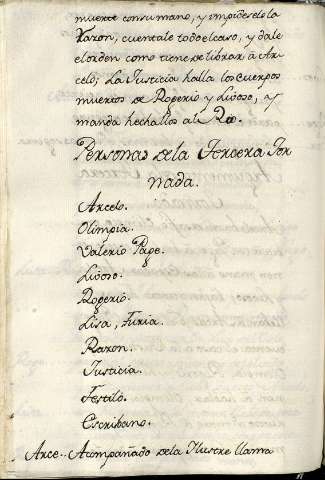 muerte consu mano, y impidesele la
Razon, cuentale todo el caso, y dale
el orden como tiene de librar â Ar-
celo; La Justicia halla los cuerpos
muertos de Rogerio y Livoso, y
manda hechallos al Rio.
Personas dela Tercera Jor
nada.
Arcelo.
Olimpia.
Valerio Page.
Livoso.
Rogerio.
Lisa, Furia.
Razon.
Justicia.
Festilo.
Escribano.
Arce.. Acompañado dela Ilustre llama